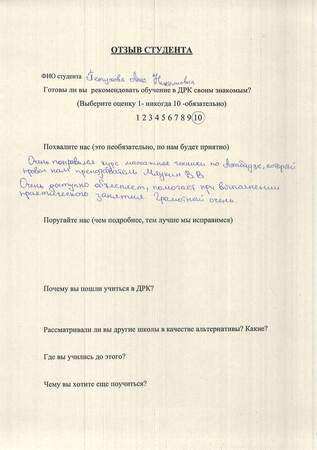 ОТЗЫВ СТУДЕНТА
ФИО студента
Готовы ли вы рекомендовать обучение в ДРК своим знакомым?
(Выберите оценку 1- никогда 10 -обязательно)
1 2 3 4 5 6 7 8 9 10
Похвалите нас (это необязательно, но нам будет приятно)
Очень понравился курс массажные техники по которой
провел нам преподаватель В.В.
Очень доступно объясняет, помогает при выполнении
практического занятия. Грамотной очень.
Поругайте нас (чем подробнее, тем лучше мы исправимся)
Почему вы пошли учиться в ДРК?
Рассматривали ли вы другие школы в качестве альтернативы? Какие?
Где вы учились до этого?
Чему вы хотите еще поучиться?